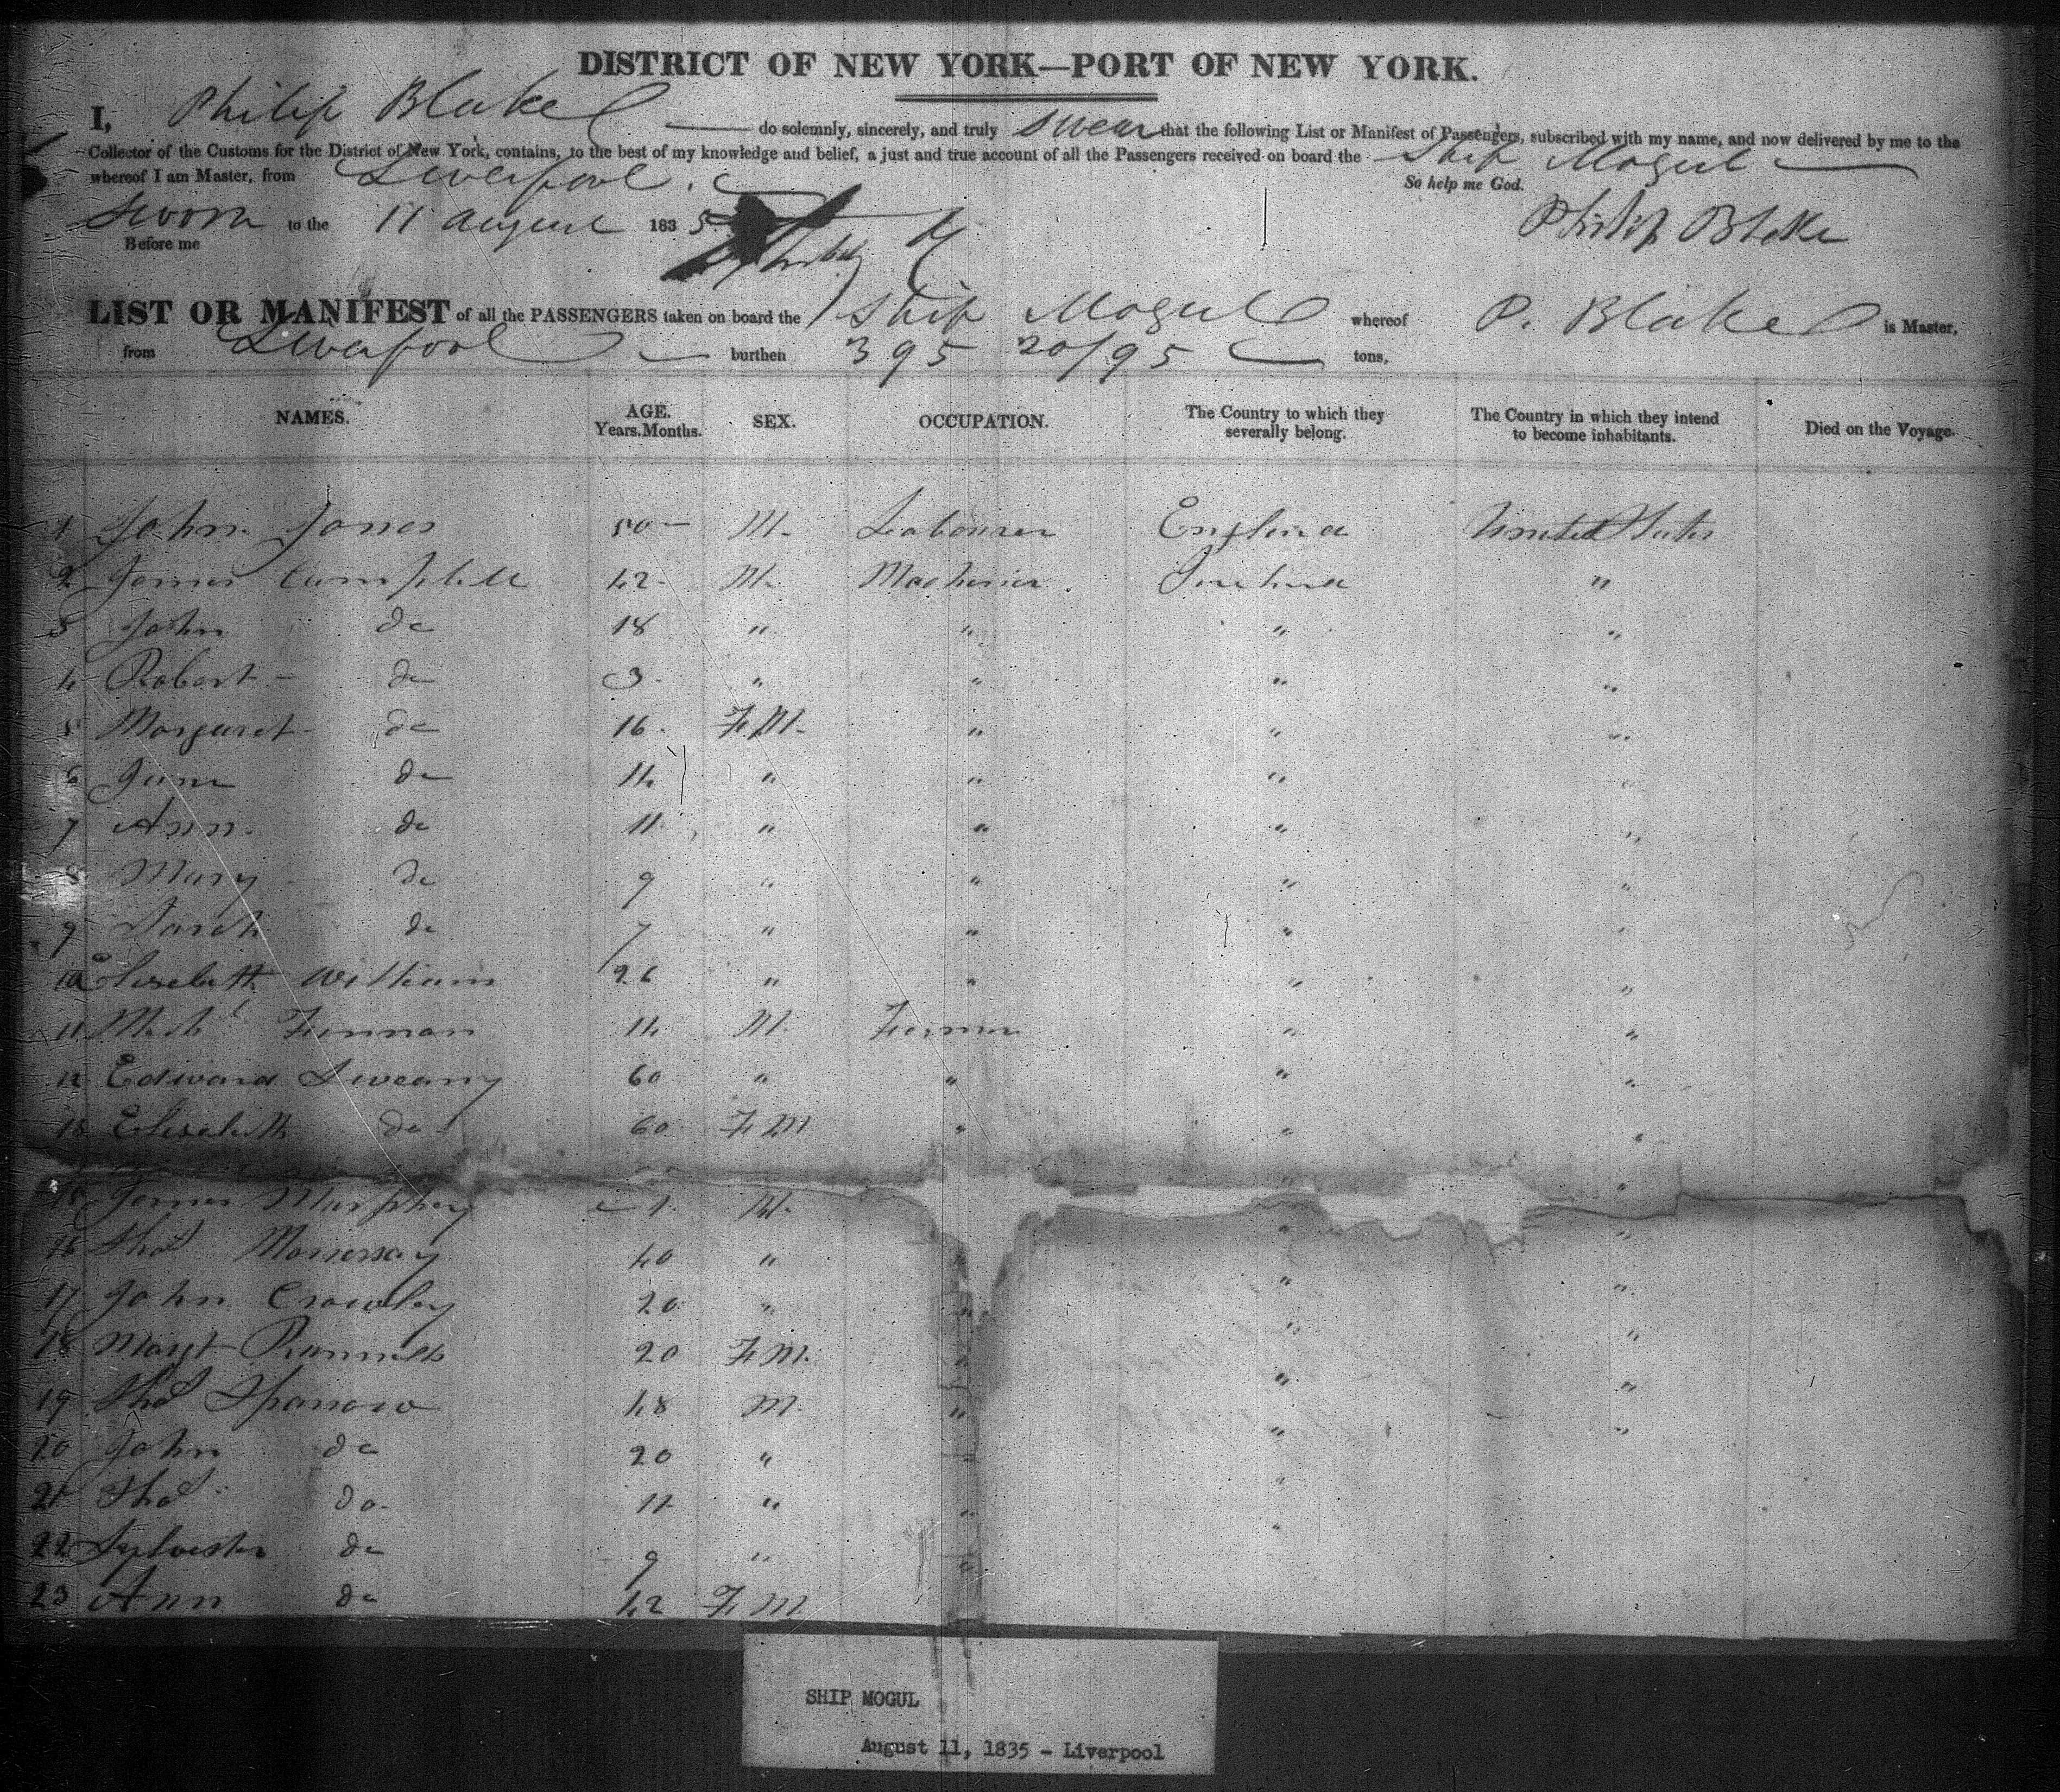 DISTRICT OF NEW YORK—PORT OF NEW YORK.
I, Philip Blake do solemnly, sincerely, and truly swear that the following List or Manifest of Passengers, subscribed with my name, and now delivered by me to the
Collector of the Customs for the District of New York, contains, to the best of my knowledge and belief, a just and true account of all the Passengers received on board the Ship Mogul
whereof I am Master, from Liverpool. So help me God.
Sworn to the 11 August 1835 Philip Blake
Before me
LIST OR MANIFEST of all the PASSENGERS taken on board the Ship Mogul whereof P. Blake is Master,
from Liverpool burthen 395 20/95 tons,
NAMES. AGE. Years. Months. SEX. OCCUPATION. The Country to which they severally belong. The Country in which they intend to become inhabitants. Died on the Voyage.
1 John Jones 50 M. Labourer England United States
2 James Campbell 42 M. Ireland "
3 John do 18 " " " "
4 Robert do 3 " " " "
5 Margaret do 16 F.M. " " "
6 Jane do 14 " " " "
7 Ann do 11 " " " "
8 Mary do 9 " " " "
9 Sarah do 7 " " " "
10 Elisebeth William 26 " " " "
11 Finnan 14 M. Farmer " "
12 Edward Sweany 60 " " " "
13 Elisabeth do 60 F.M " " "
15 James Murphey 1 M. " "
16 Thos Morressay 40 " " " "
17 John Crowley 20 " " " "
18 Margt 20 F.M. " " "
19 Thos Sparrow 48 M. " " "
20 John do 20 " "
21 Thos do 11 " " "
22 Sylvester do 9 " "
23 Ann do 42 F.M
SHIP MOGUL
August 11, 1835 - Liverpool